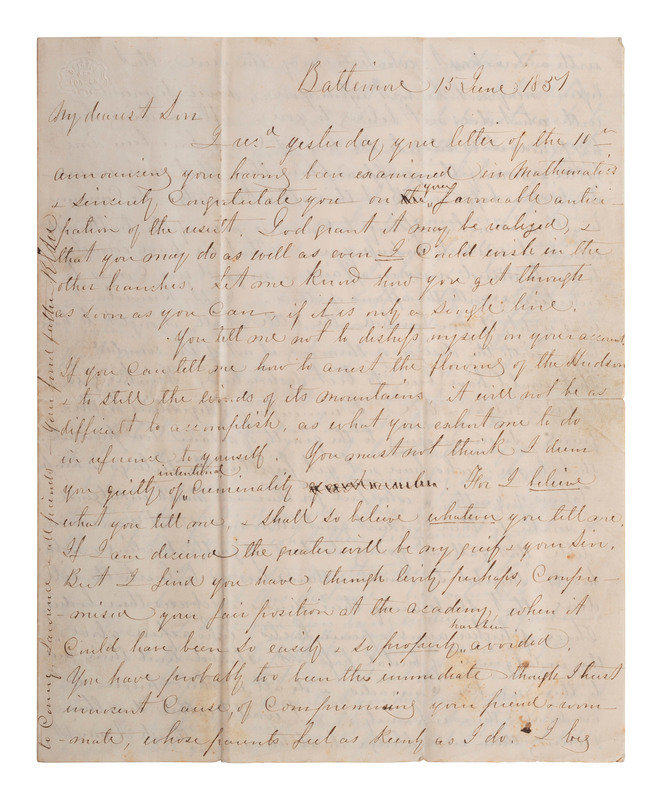 Baltimore 15 June 1851
My dearest Son
I recd yesterday your letter of the 10th
announcing your having been examined in Mathematics
& sincerely Congratulate you on your favourable antici-
pation of the result. God grant it may be realized, &
that you may do as well as even I Could wish in the
other branches. Let me know how you get through
as soon as you Can, if it is only a single line.
You tell me not to distress myself on your account
If you Can tell me how to arrest the flowing of the Hudson
& to still the winds of its mountains, it will not be as
difficult to accomplish, as what you exhort me to do
in reference to yourself. You must not think I deem
you guilty of intentional Criminality. For I believe
what you tell me, & shall so believe whatever you tell me.
If I am deceived the greater will be my grief & your Sin.
But I find you have through levity perhaps, Compro-
-mised your fair position at the academy, when it
Could have been so easily & so properly have been avoided.
You have probably too been the immediate though I trust
innocent Cause, of Compromising your friend & room-
-mate, whose parents feel as keenly as I do. I beg
to Conny. Lawrence & all friends Your fond father R E Lee